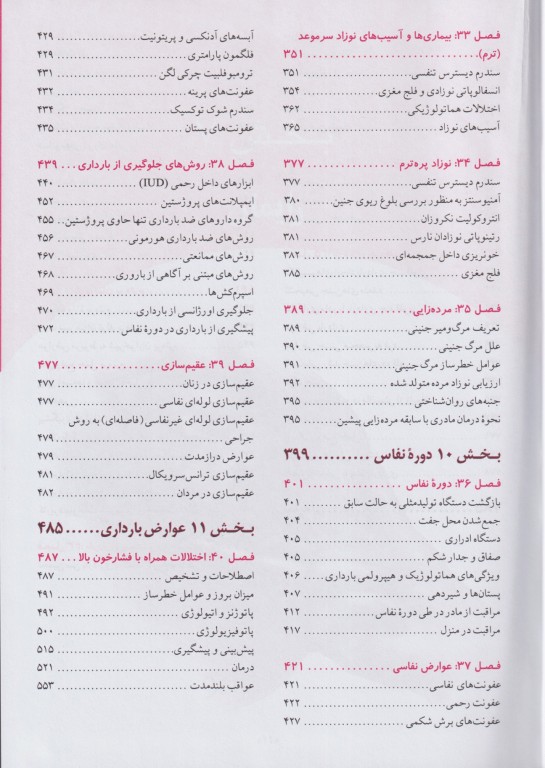 فصل ۳۳: بیماری‌ها و آسیب‌های نوزاد سرموعد
(ترم). ۳۵۱
سندرم دیسترس تنفسی ۳۵۱
انسفالوپاتی نوزادی و فلج مغزی ۳۵۴
اختلالات هماتولوژیکی ۳۶۲
آسیب‌های نوزاد ۳۶۵
فصل ۳۴: نوزاد پره‌ترم ۳۷۷
سندرم دیسترس تنفسی ۳۷۷
آمنیوسنتز به منظور بررسی بلوغ ریوی جنین ۳۸۰
انتروکولیت نکروزان ۳۸۱
رتینوپاتی نوزادان نارس ۳۸۱
خونریزی داخل جمجمه‌ای ۳۸۲
فلج مغزی ۳۸۵
فصل ۳۵: مرده‌زایی ۳۸۹
تعریف مرگ‌ومیر جنینی ۳۸۹
علل مرگ جنینی ۳۹۰
عوامل خطرساز مرگ جنینی ۳۹۱
ارزیابی نوزاد مرده متولد شده ۳۹۲
جنبه‌های روان‌شناختی ۳۹۵
نحوهٔ درمان مادری با سابقه مرده‌زایی پیشین ۳۹۵
بخش ۱۰ دورهٔ نفاس ۳۹۹
فصل ۳۶: دورهٔ نفاس ۴۰۱
بازگشت دستگاه تولیدمثلی به حالت سابق ۴۰۱
جمع‌شدن محل جفت ۴۰۴
دستگاه ادراری ۴۰۵
صفاق و جدار شکم ۴۰۵
ویژگی‌های هماتولوژیک و هیپرولمی بارداری ۴۰۶
پستان‌ها و شیردهی ۴۰۷
مراقبت از مادر در طی دورهٔ نفاس ۴۱۲
مراقبت در منزل ۴۱۷
فصل ۳۷: عوارض نفاسی ۴۲۱
عفونت‌های نفاسی ۴۲۱
عفونت رحمی ۴۲۲
عفونت‌های برش شکمی ۴۲۷
آبسه‌های آدنکسی و پریتونیت ۴۲۹
فلگمون پارامتری ۴۲۹
ترومبوفلبیت چرکی لگن ۴۳۱
عفونت‌های پرینه ۴۳۲
سندرم شوک توکسیک ۴۳۴
عفونت‌های پستان ۴۳۵
فصل ۳۸: روش‌های جلوگیری از بارداری ۴۳۹
ابزارهای داخل رحمی (IUD) ۴۴۰
ایمپلانت‌های پروژستین ۴۵۲
گروه داروهای ضد بارداری تنها حاوی پروژستین ۴۵۵
روش‌های ضد بارداری هورمونی ۴۵۶
روش‌های ممانعتی ۴۶۷
روش‌های مبتنی بر آگاهی از باروری ۴۶۸
اسپرم‌کش‌ها ۴۶۹
جلوگیری اورژانسی از بارداری ۴۷۰
پیشگیری از بارداری در دورهٔ نفاس ۴۷۲
فصل ۳۹: عقیم‌سازی ۴۷۷
عقیم‌سازی در زنان ۴۷۷
عقیم‌سازی لوله‌ای نفاسی ۴۷۷
عقیم‌سازی لوله‌ای غیرنفاسی (فاصله‌ای) به روش
جراحی ۴۷۹
عوارض درازمدت ۴۷۹
عقیم‌سازی ترانس‌سرویکال ۴۸۱
عقیم‌سازی در مردان ۴۸۲
بخش ۱۱ عوارض بارداری ۴۸۵
فصل ۴۰: اختلالات همراه با فشارخون بالا ۴۸۷
اصطلاحات و تشخیص ۴۸۷
میزان بروز و عوامل خطرساز ۴۹۱
پاتوژنز و اتیولوژی ۴۹۲
پاتوفیزیولوژی ۵۰۰
پیش‌بینی و پیشگیری ۵۱۵
درمان ۵۲۱
عواقب بلندمدت ۵۵۳